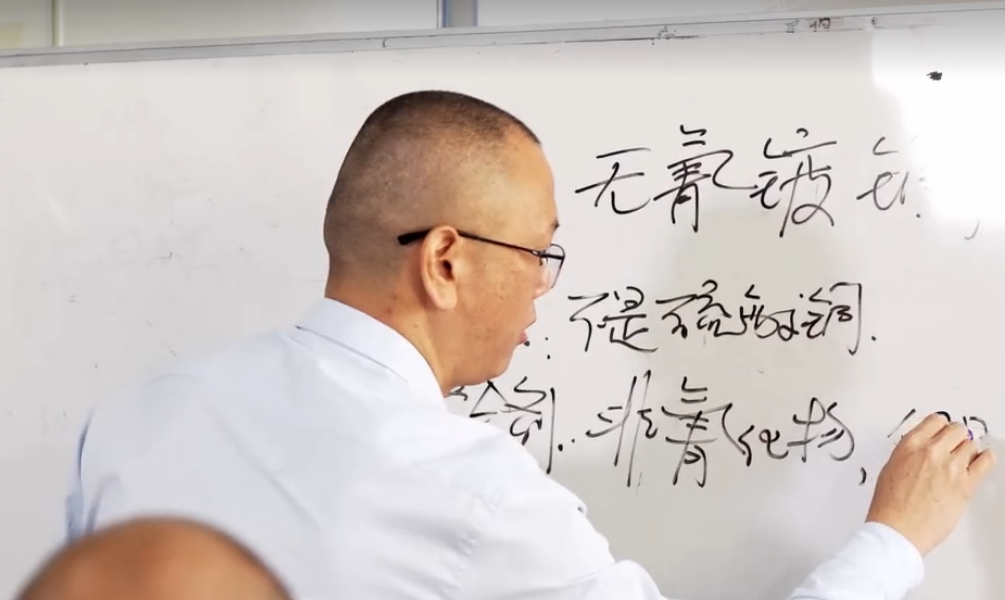 无氰镀
: 不是硫酸铜.
合剂: 非氰化物,